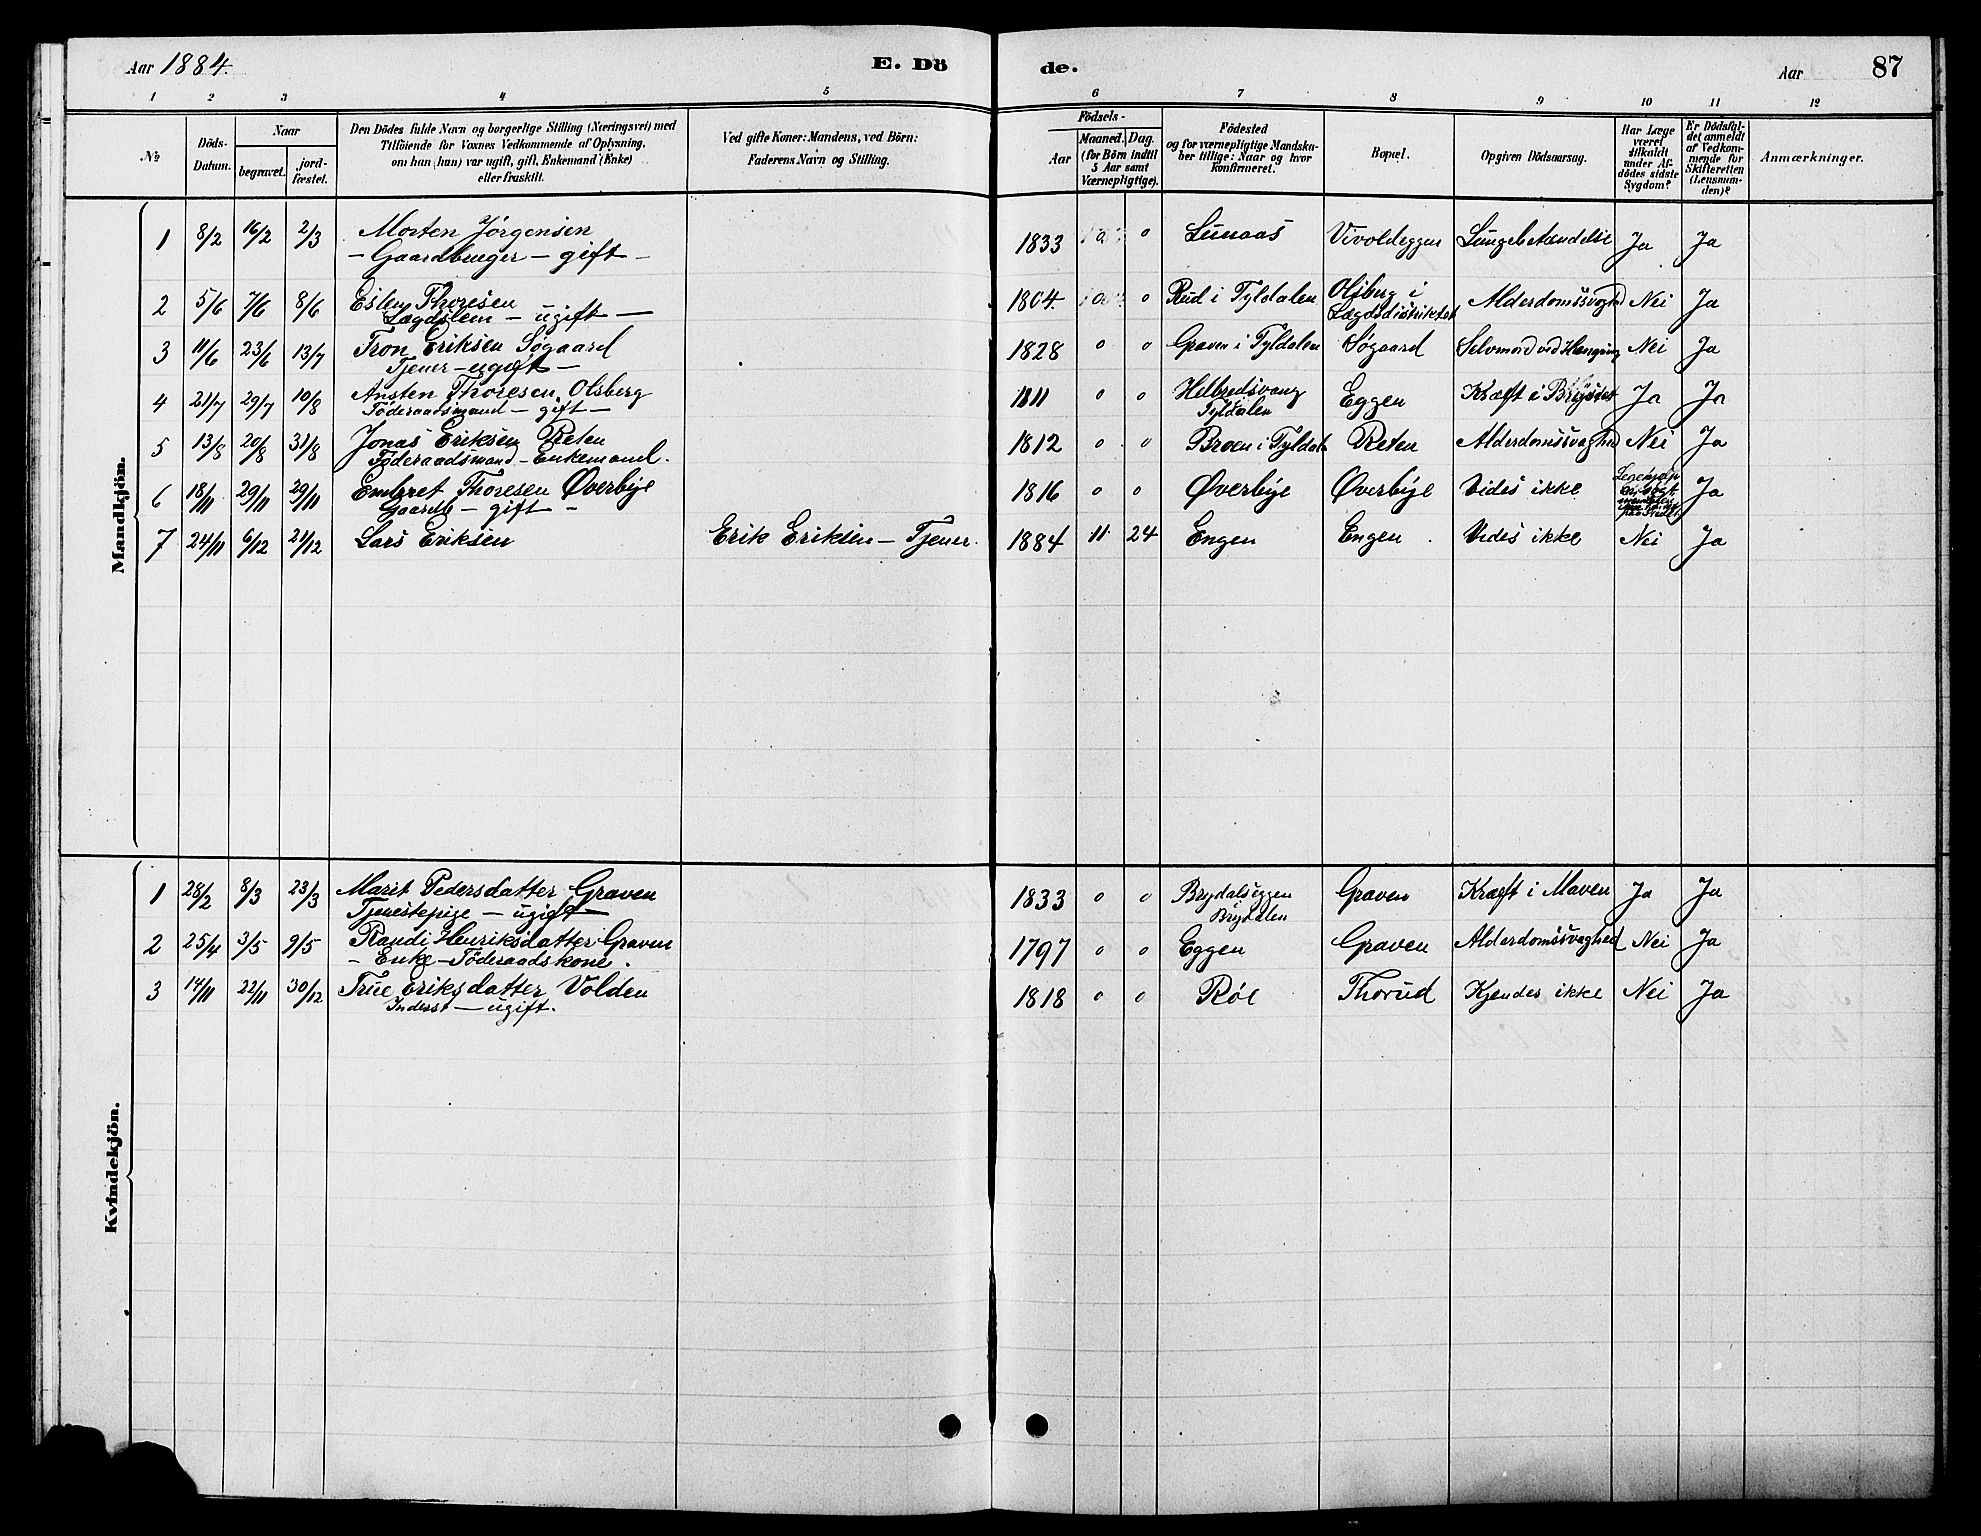 Aar 1884. E. Dö de. Aar 87
1 2 3 4 5 6 7 8 9 10 11 12
№
Döds-Datum.
Naar
begravet.
jordfæstet.
Den Dödes fulde Navn og borgerlige Stilling (Næringsvei) med
Tilföiende for Voxnes Vedkommende af Oplysning,
om hun (han) var ugift, gift, Enkemand (Enke)
eller fraskilt.
Ved gifte Koner: Mandens, ved Börn:
Faderens Navn og Stilling.
Födsels-
Aar
Maaned. Dag.
(for Börn indtil
5 Aar samt
Værnepligtige).
Födested
og for værnepligtige Mandskaber tillige: Naar og hvor
konfirmeret.
Bopæl.
Opgiven Dödsaarsag.
Har Læge
været
tilkaldt
under Afdödes sidste
Sygdom?
Er Dödsfaldet anmeldt
af Vedkommende for
Skifteretten
(Lensmanden)?
Anmærkninger.
Mandkjön.
1 8/2 16/2 2/3 Morten Jörgensen 1833 0 Lunaas Vivoldeggen Lungebetændelse Ja Ja
- Gaardbruger - gift -
2 5/6 7/6 8/6 Eslen Thoresen 1804 0 Rud i Tyldalen Olsberg i Alderdomssvaghed Nei Ja
Lægdslem - ugift - Lægdsdistriktet
3 11/6 23/6 13/7 Tron Eriksen Søgaard 1828 0 0 Graven i Tyldalen Søgaard Selvmord ved Hængning Nei Ja
Tjener - ugift -
4 21/7 29/7 10/8 Ansten Thoresen Olsberg 1811 0 0 Helbredsvang Eggen Kræft i Brystet Ja Ja
Föderaadsmand - gift - Tyldalen
5 13/8 20/8 31/8 Jonas Eriksen Reten 1812 0 0 Broen i Tyldal Reten Alderdomssvaghed Nei Ja
Föderaadsmand - Enkemand.
6 18/11 29/11 29/11 Embret Thoresen Øverbye 1816 0 0 Øverbye Øverbye Vides ikke Ja
Gaardb - gift -
7 24/11 6/12 21/12 Lars Eriksen Erik Eriksen - Tjener. 1884 11 24 Engen Engen Vides ikke Nei Ja
Kvindekjön.
1 28/2 8/3 23/3 Marit Pedersdatter Graven 1833 0 0 Brydalseggen Graven Kræft i Maven Ja Ja
Tjenestepige - ugift i Brydalen
2 25/4 3/5 9/5 Randi Henriksdatter Graven 1797 0 0 Eggen Graven Alderdomssvaghed Nei Ja
- Enke - Föderaadskone.
3 14/11 22/11 30/12 True Eriksdatter Volden 1818 0 0 Røe Thorud Kjendes ikke Nei Ja
Inderst - ugift.